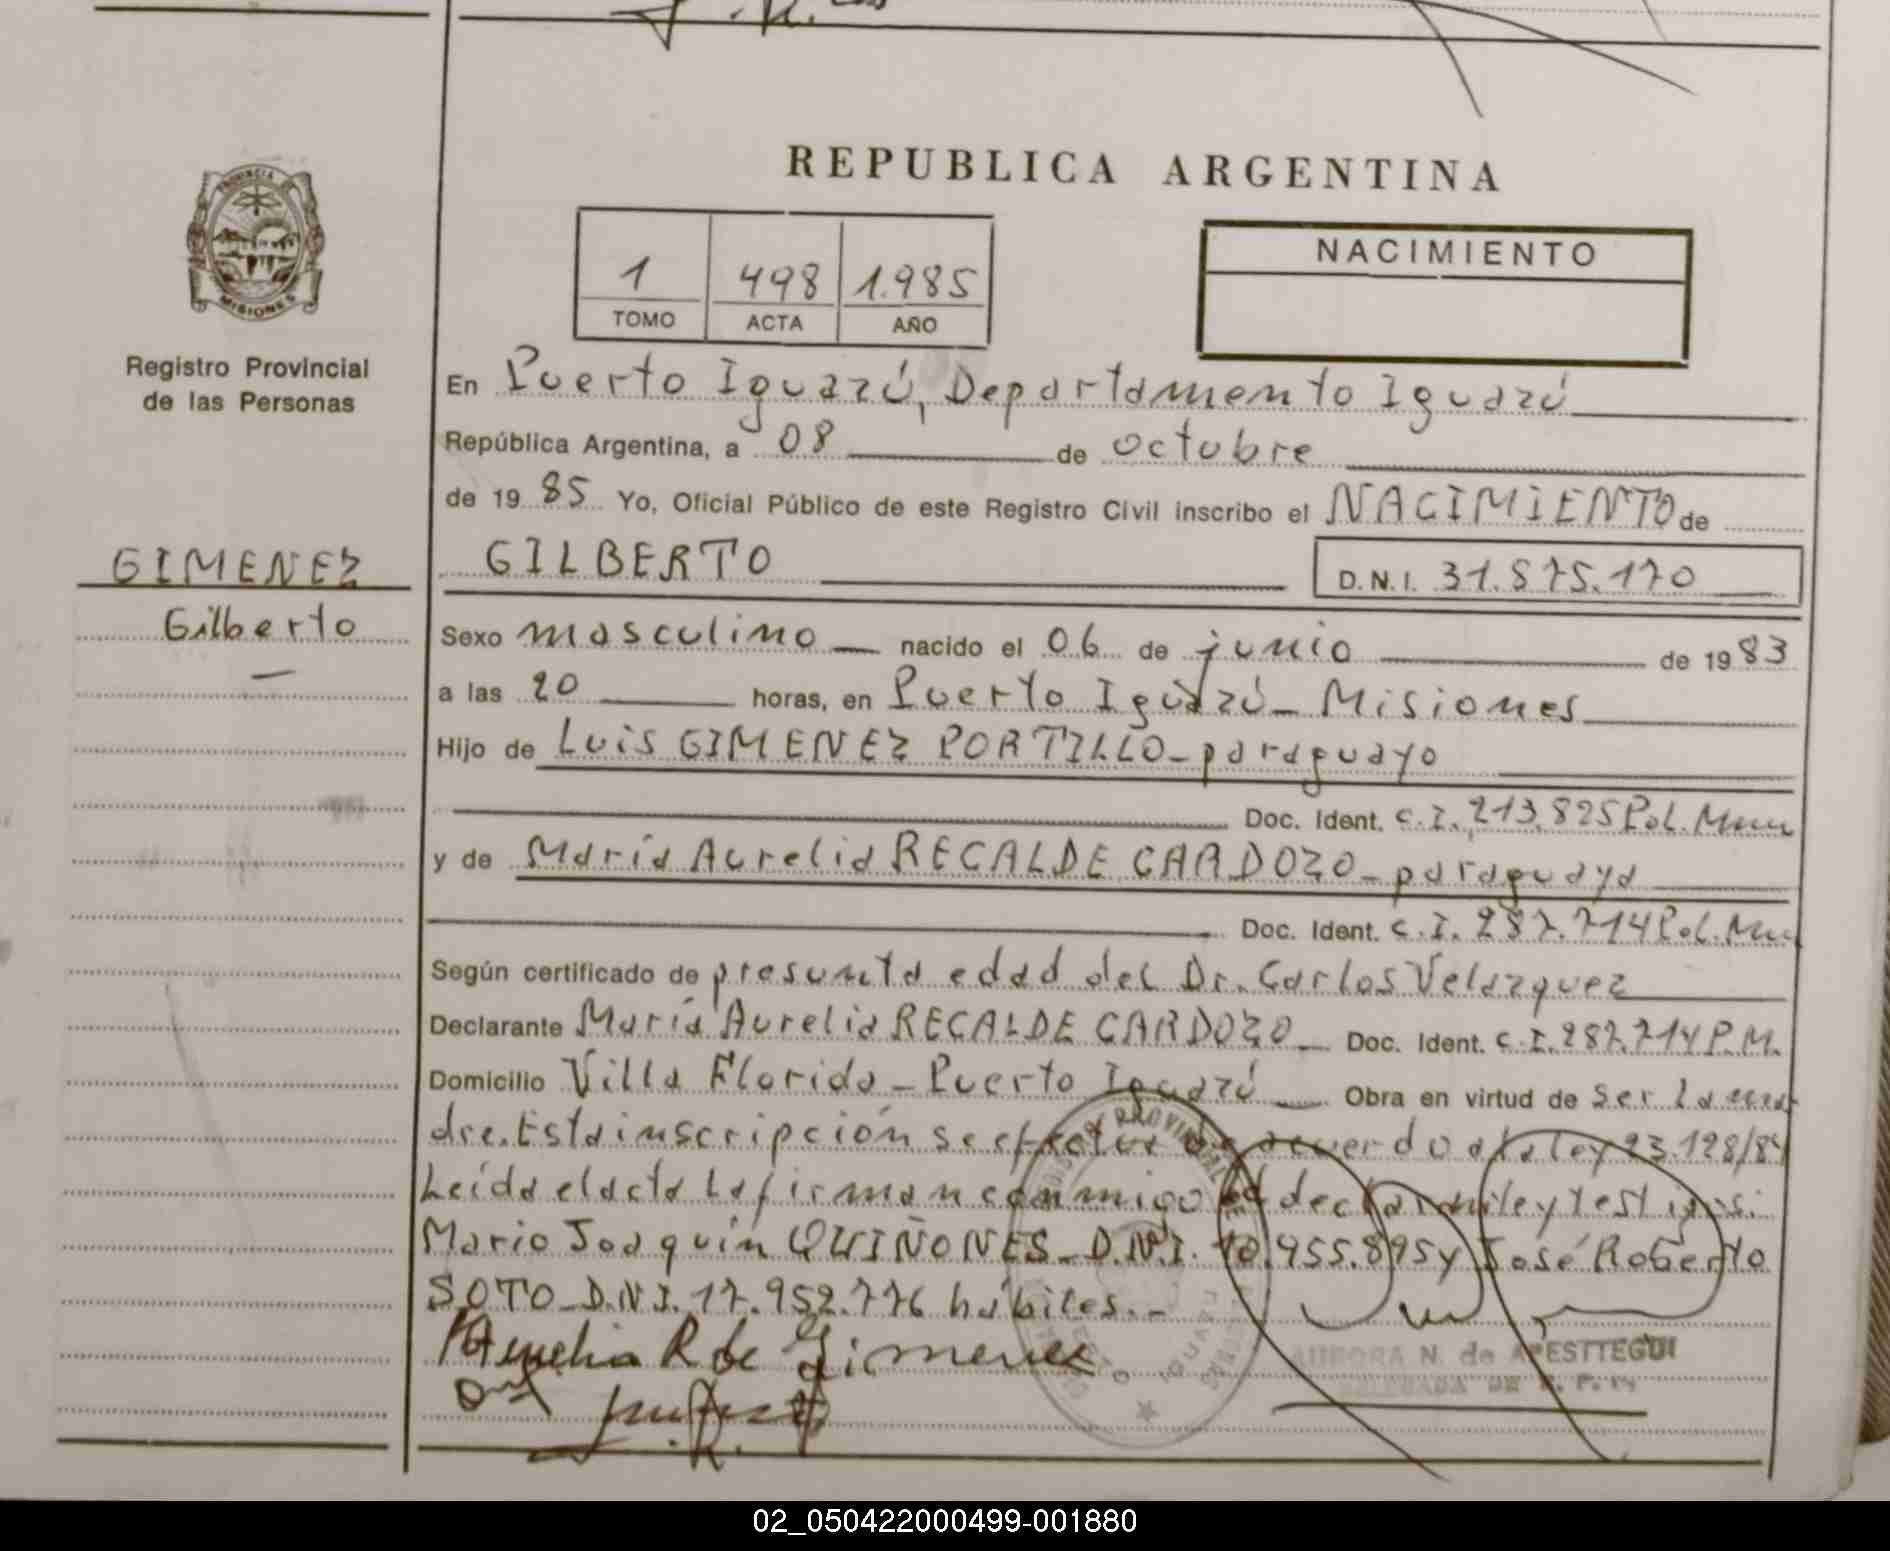 REPUBLICA ARGENTINA
PROVINCIA DE
MISIONES
Registro Provincial
de las Personas
1 498 1.985
TOMO ACTA AÑO
NACIMIENTO
En Puerto Iguazú, Departamento Iguazú
República Argentina, a 08 de octubre
de 19 85 Yo, Oficial Público de este Registro Civil inscribo el NACIMIENTO de
GIMENEZ
Gilberto
GILBERTO D.N.I. 31.875.170
Sexo masculino nacido el 06 de junio de 19 83
a las 20 horas, en Puerto Iguazú - Misiones
Hijo de Luis GIMENEZ PORTILLO - paraguayo
Doc. Ident. C.I. 213.825 Pol. Mnes
y de María Aurelia RECALDE CARDOZO - paraguaya
Doc. Ident. C.I. 287.714 Pol. Mnes
Según certificado de presunta edad del Dr. Carlos Velazquez
Declarante María Aurelia RECALDE CARDOZO - Doc. Ident. C.I. 287.714 P.M.
Domicilio Villa Florida - Puerto Iguazú Obra en virtud de ser la ma
dre. Esta inscripción se efectua de acuerdo a la ley 23.128/84
Leída el acta la firman conmigo la declarante y testigos:
Mario Joaquín QUIÑONES - D.N.I. 10.955.895 y José Roberto
SOTO - D.N.I. 17.952.776 hábiles.-
Aurelia R de Gimenez
AURORA N. de APESTTEGUI
DELEGADA DE R. P.
02_050422000499-001880